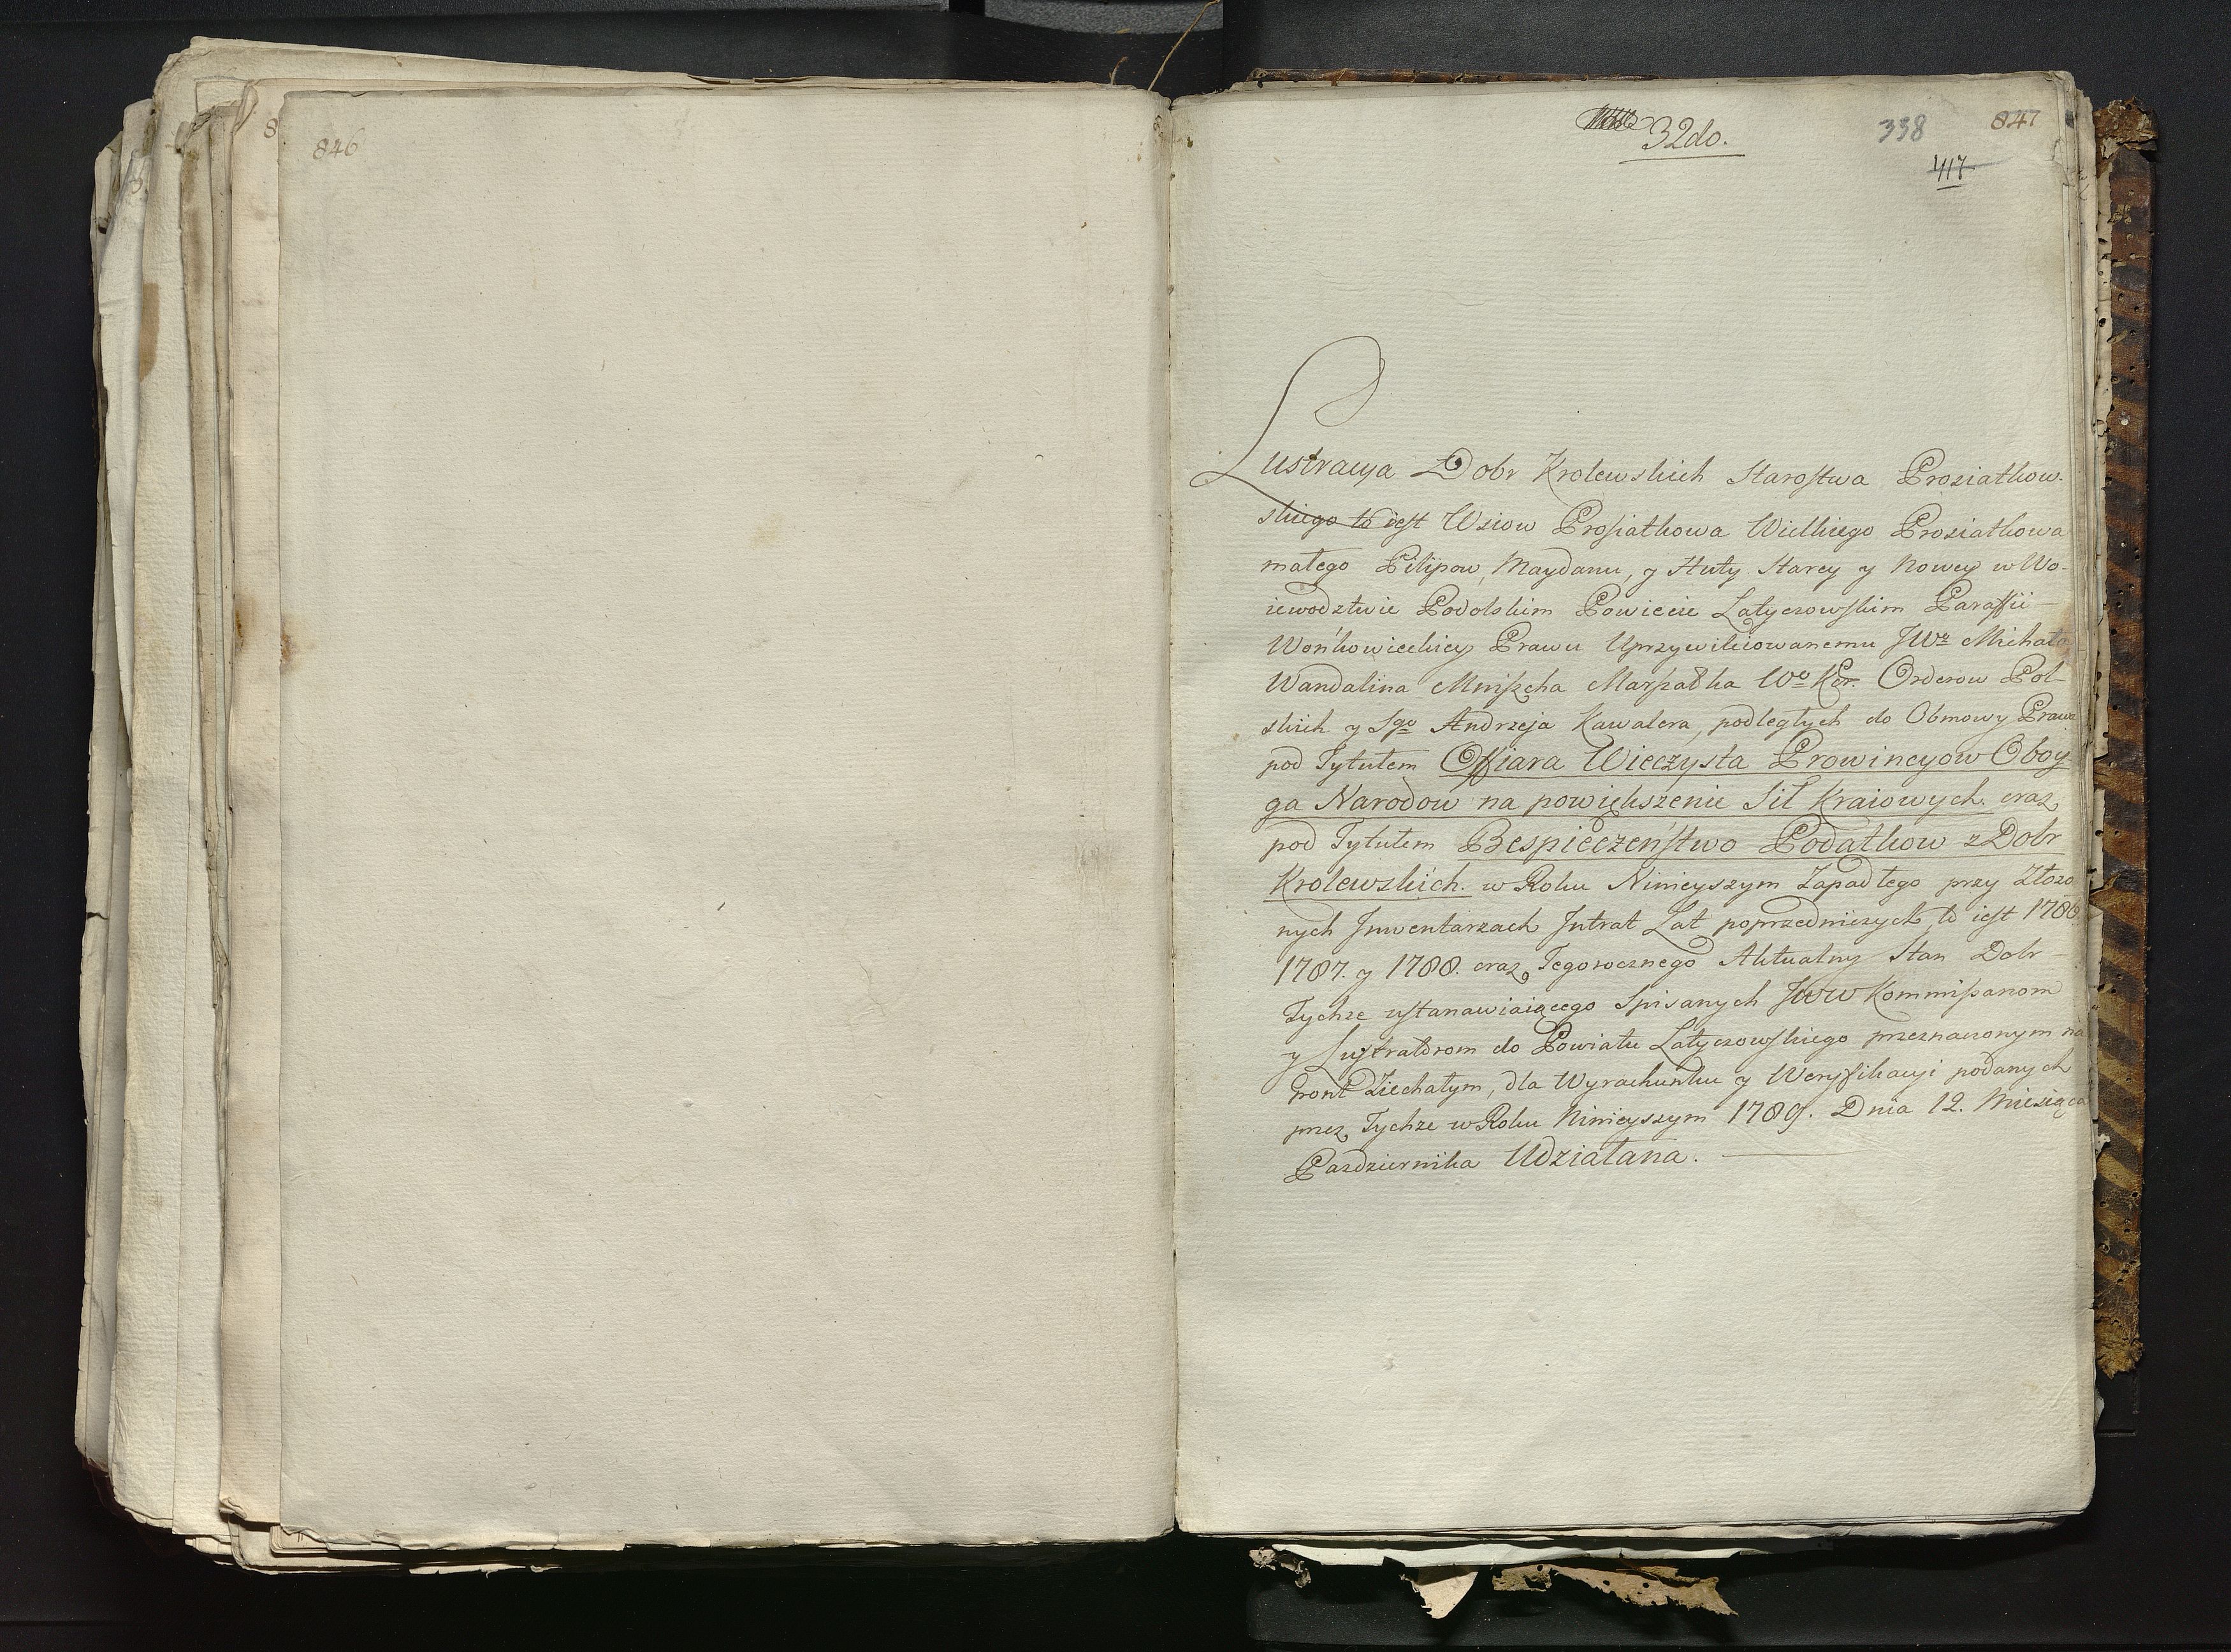 846
32do.
338
847
417
Lustracya Dobr Krolewskich Starostwa Prosiatkow-
skiego to iest Wsiow Prosiatkowa Wielkiego Prosiatkowa
małego Pilipow, Maydanu, y Huty Starey y Nowey w Wo-
iewodztwie Podolskim Powiecie Latyczowskim Paraffii
Wońkowieckiey Prawu Uprzywileiowanemu JWo Michała
Wandalina Mniszcha Marszałka Wo Kor. Orderow Pol-
skich y Sgo Andrzeja Kawalera, podległych do Obmowy Prawa
pod Tytułem Offiara Wieczysta Prowincyow Oboy-
ga Narodow na powiększenie Sił Kraiowych. oraz
pod Tytułem Bespieczeństwo Podatkow z Dobr
Krolewskich. w Roku Ninieyszym Zapadłego przy Złożo
nych Jnwentarzach Jntrat Lat poprzedniczych to iest 1786.
1787. y 1788. oraz Tegorocznego Aktualny Stan Dobr
Tychże ustanawiaiącego Spisanych JWW Kommissarzom
y Lustratorom do Powiatu Latyczowskiego przeznaczonym na
Gront Ziechałym, dla Wyrachunku y Weryfikacyi podanych
przez Tychże w Roku Ninieyszym 1789. Dnia 12. Miesiąca
Pazdziernika Udziałana.